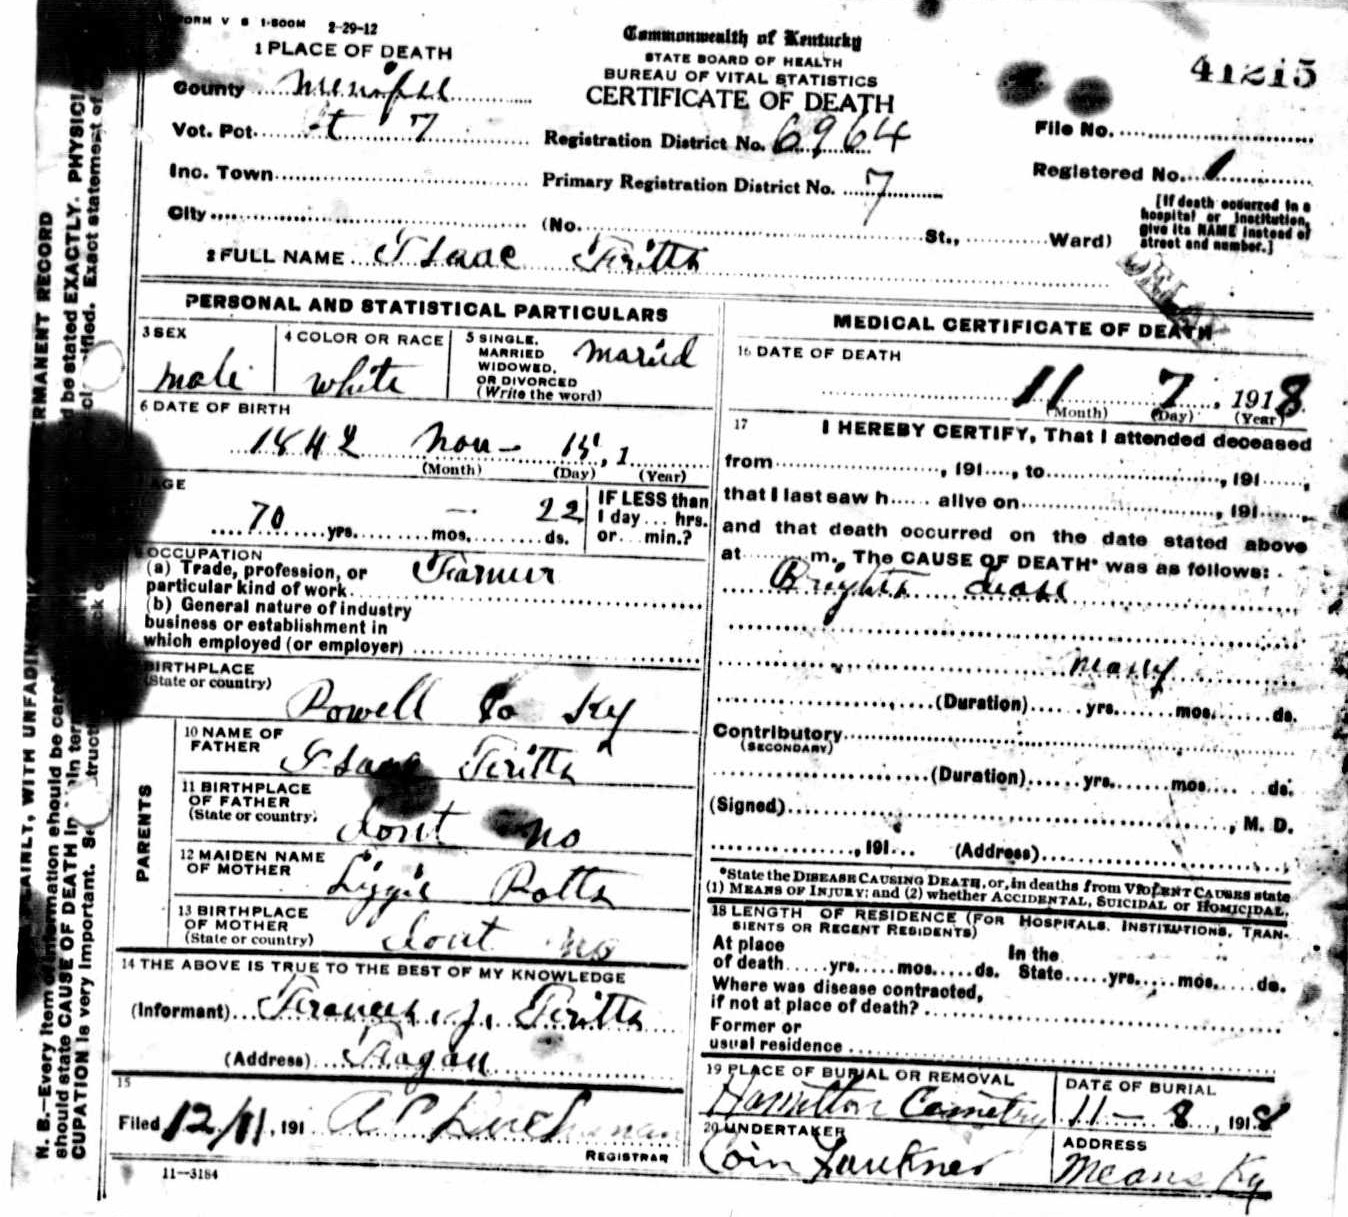 FORM V S 1-500M 2-29-12
1 PLACE OF DEATH
County Menifee
Vot. Pct. 7
Inc. Town
City (No. St., Ward)
Commonwealth of Kentucky
STATE BOARD OF HEALTH
BUREAU OF VITAL STATISTICS
CERTIFICATE OF DEATH
Registration District No. 6964
Primary Registration District No. 7
41215
File No.
Registered No. 1
[If death occurred in a
hospital or institution,
give its NAME instead of
street and number.]
2 FULL NAME Isaac
PERSONAL AND STATISTICAL PARTICULARS
3 SEX
male
4 COLOR OR RACE
white
5 SINGLE,
MARRIED
WIDOWED,
OR DIVORCED
(Write the word)
Maried
6 DATE OF BIRTH
1842 Nov - 15, 1
(Month) (Day) (Year)
AGE
70 yrs. — mos. 22 ds.
IF LESS than
1 day ... hrs.
or ... min.?
OCCUPATION
(a) Trade, profession, or
particular kind of work. Farmer
(b) General nature of industry
business or establishment in
which employed (or employer)
BIRTHPLACE
(State or country)
Powell Co Ky
PARENTS
10 NAME OF
FATHER
Isaac
11 BIRTHPLACE
OF FATHER
(State or country)
dont no
12 MAIDEN NAME
OF MOTHER
Lizzie Potts
13 BIRTHPLACE
OF MOTHER
(State or country)
dont no
14 THE ABOVE IS TRUE TO THE BEST OF MY KNOWLEDGE
(Informant) Frances. J.
(Address) Fragan
15
Filed 12/11, 191
REGISTRAR
11—3184
DELAY
MEDICAL CERTIFICATE OF DEATH
16 DATE OF DEATH
11 7, 1918
(Month) (Day) (Year)
17 I HEREBY CERTIFY, That I attended deceased
from , 191 , to , 191 ,
that I last saw h alive on , 191 ,
and that death occurred on the date stated above
at m. The CAUSE OF DEATH* was as follows:
Brights dease
(Duration) yrs. mos. ds.
Contributory
(SECONDARY)
(Duration) yrs. mos. ds.
(Signed) , M. D.
, 191 (Address)
*State the DISEASE CAUSING DEATH, or, in deaths from VIOLENT CAUSES state
(1) MEANS OF INJURY; and (2) whether ACCIDENTAL, SUICIDAL or HOMICIDAL.
18 LENGTH OF RESIDENCE (FOR HOSPITALS, INSTITUTIONS, TRAN-
SIENTS OR RECENT RESIDENTS)
At place In the
of death yrs. mos. ds. State yrs. mos. ds.
Where was disease contracted,
if not at place of death?
Former or
usual residence
19 PLACE OF BURIAL OR REMOVAL
Hamilton Cemetry
DATE OF BURIAL
11 - 8, 1918
20 UNDERTAKER
Coin Faulkner
ADDRESS
Means Ky
N. B.—Every item of information should be
should state CAUSE OF DEATH in
CUPATION is very important.